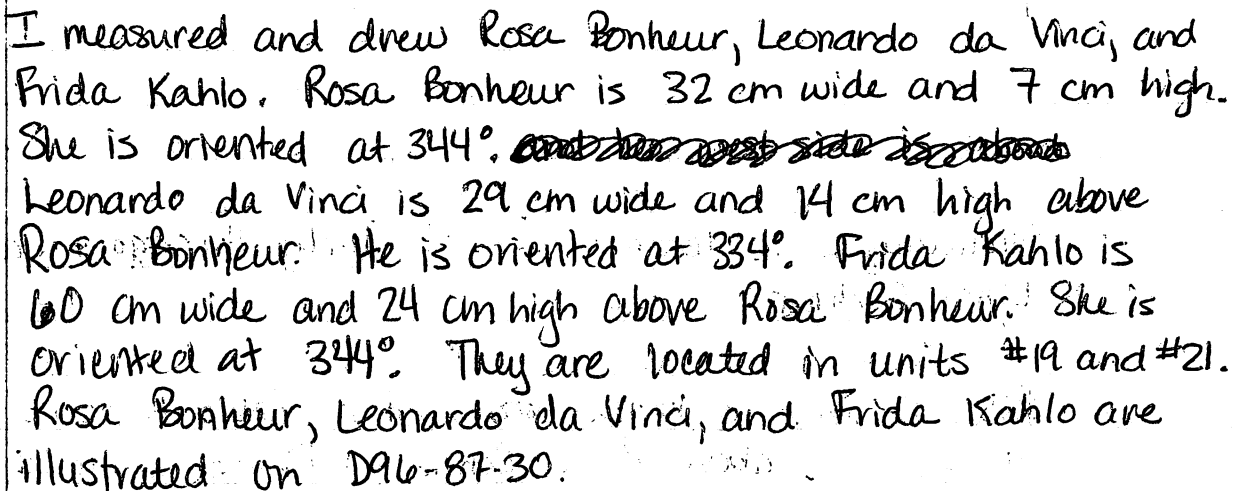 I measured and drew Rosa Bonheur, Leonardo da Vinci, and
Frida Kahlo. Rosa Bonheur is 32 cm wide and 7 cm high.
She is oriented at 344°.
Leonardo da Vinci is 29 cm wide and 14 cm high above
Rosa Bonheur. He is oriented at 334°. Frida Kahlo is
60 cm wide and 24 cm high above Rosa Bonheur. She is
oriented at 344°. They are located in units #19 and #21.
Rosa Bonheur, Leonardo da Vinci, and Frida Kahlo are
illustrated on D96-87-30.